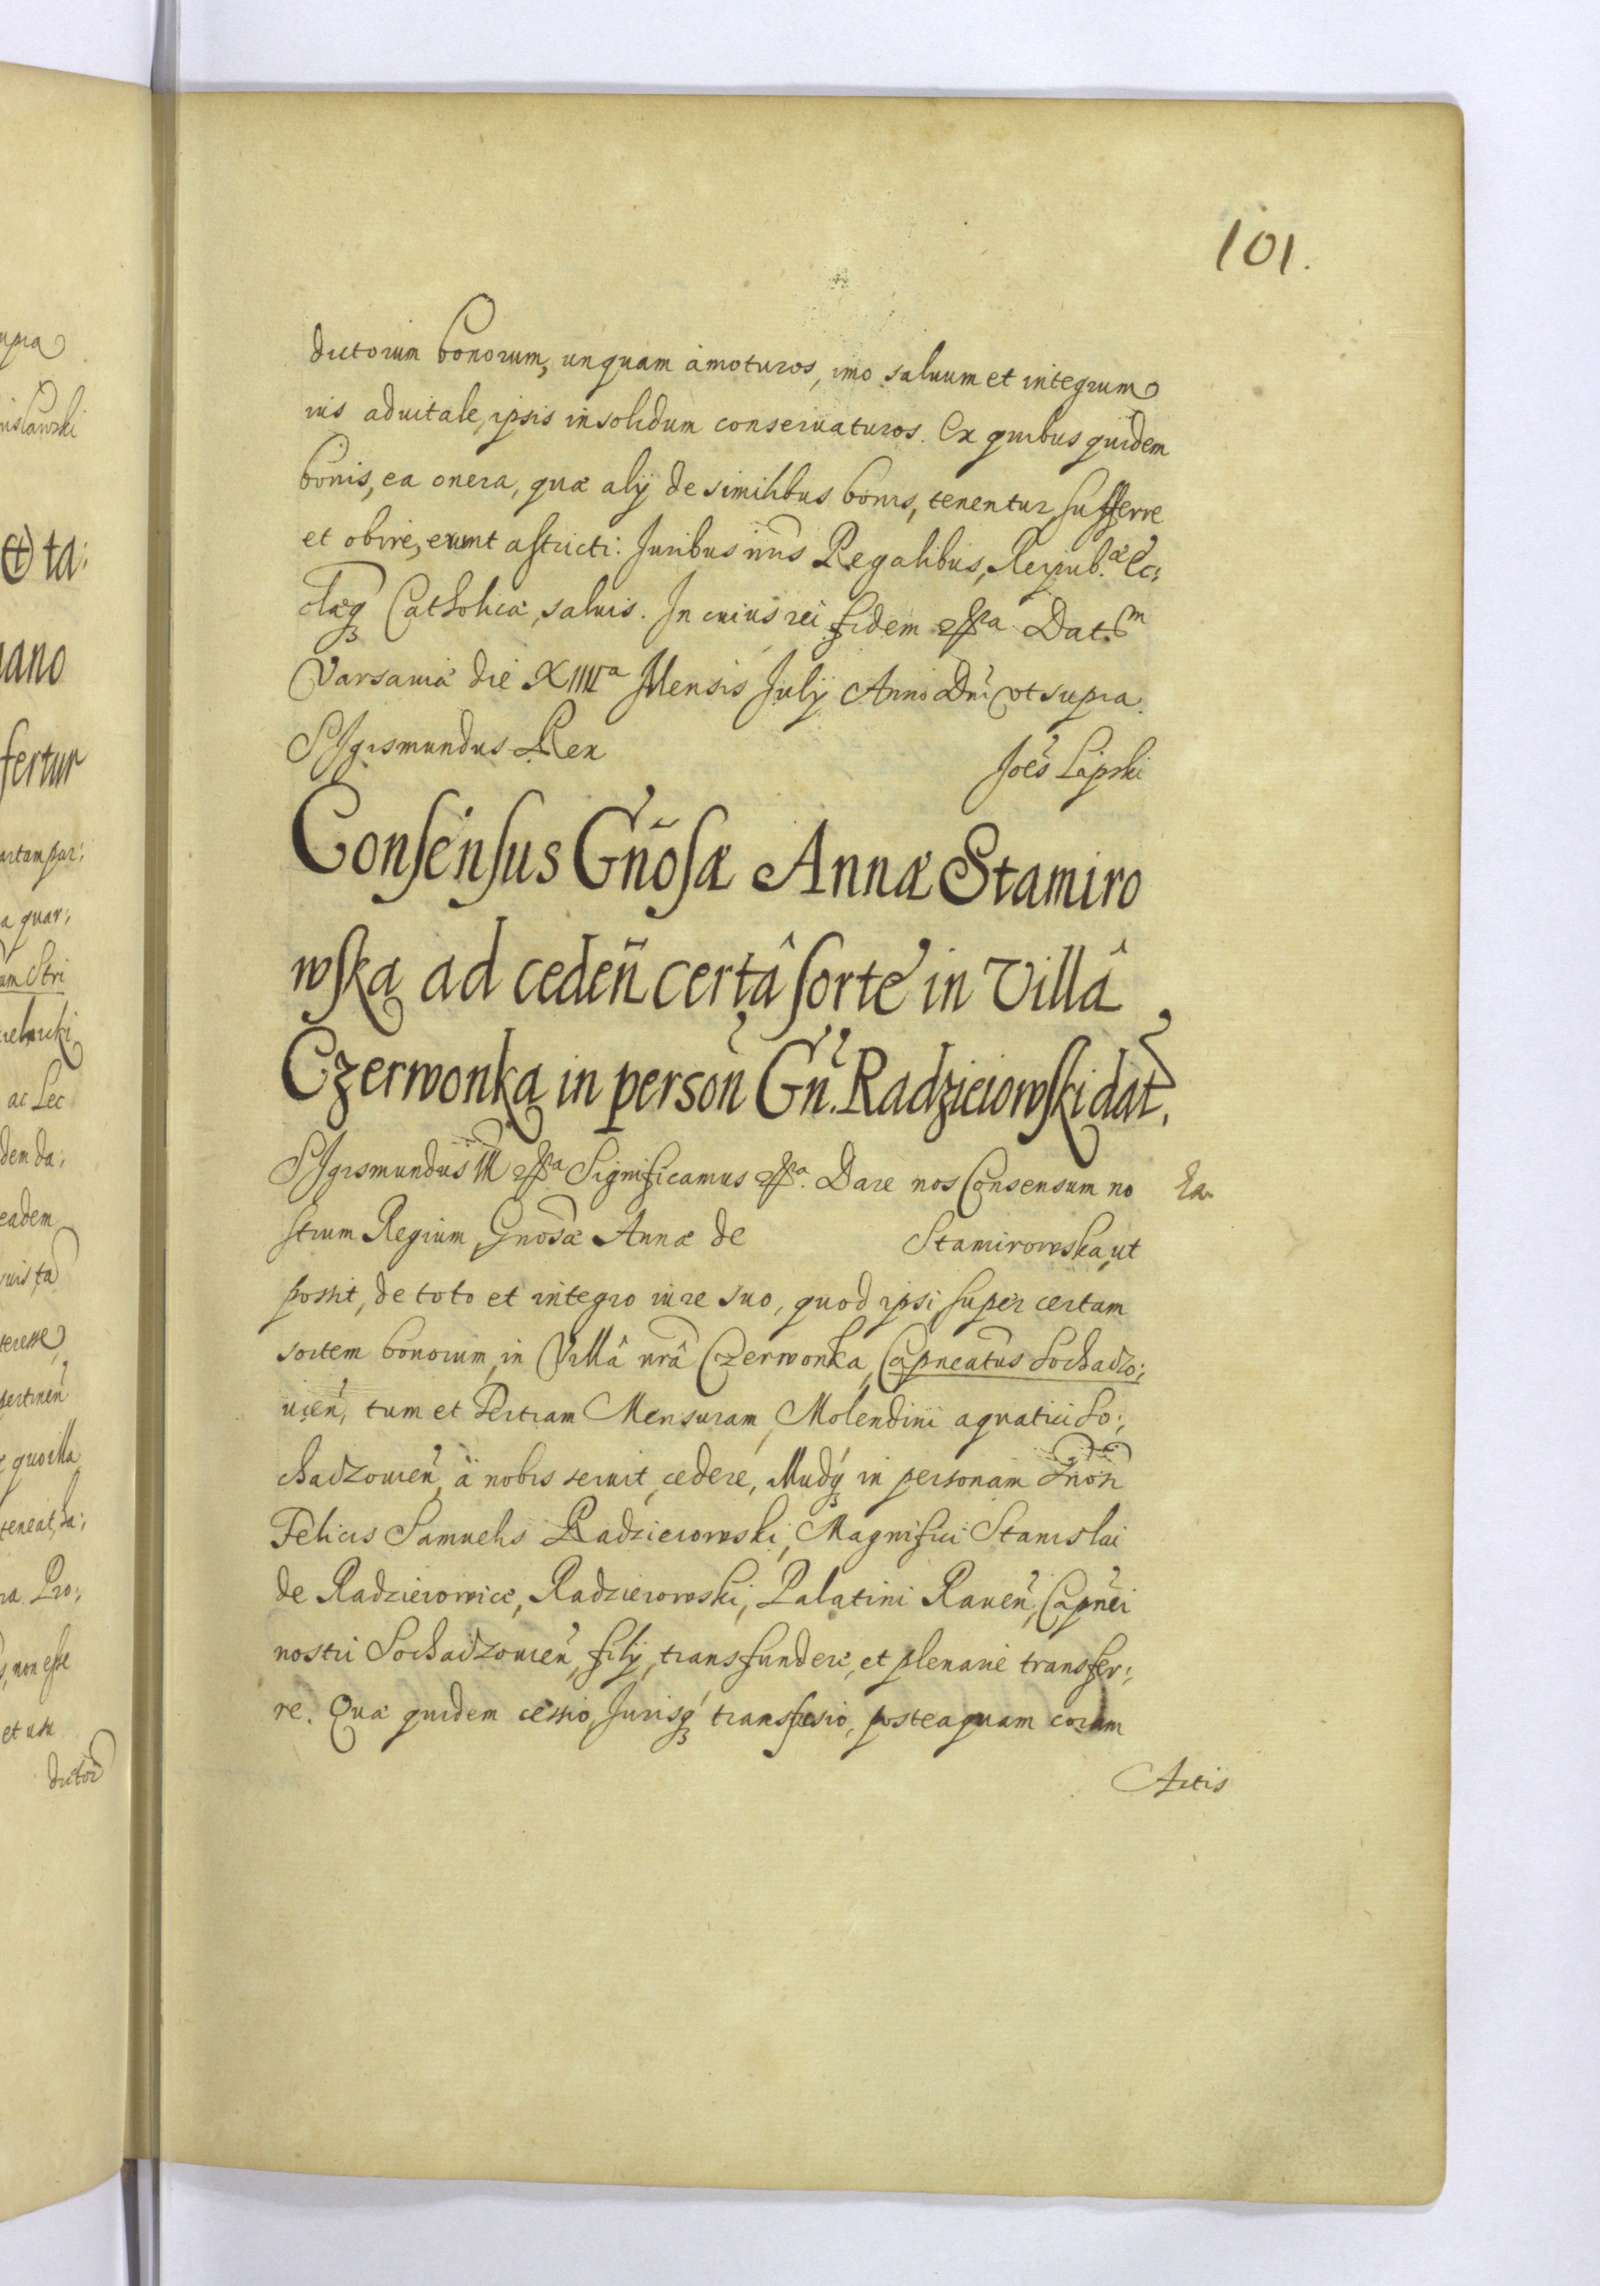 101.
dictorum bonorum, unquam àmoturos, imo saluum et integrum
ius aduitale, ipsis insolidum conseruaturos. Ex quibus quidem
bonis, ea onera, quæ alij de similibus bonis, tenentur, sufferre
et obire, erunt astricti. Juribus nris Regalibus, Reipub.æ Ec:
clæq Catholicæ, saluis. In cuius rei fidem &a Dat.m
Varsauiæ die XIIIIa Mensis Julij Anno Dni vt supra.
SIgismundus Rex
Joes Lipski
Consensus Gnosæ Annæ Stamiro
wska ad ceden certâ sorte in Villâ
Czerwonka in person Gn. Radzieiowski dat.
SIgismundus III &a Significamus &a. Dare nos Consensum no
strum Regium, Gnosæ Annæ de Stamirowska, ut
possit, de toto et integro iure suo, quod ipsi super certam
sortem bonorum, in Villâ nrâ Czerwonka, Capneatus Sochadzo:
uien, tum et Tertiam Mensuram, Molendini aquatici So:
chadzouien, à nobis seruit, cedere, illudq in personam Gnosi
Felicis Samuelis Radzieiowski, Magnifici Stanislai
de Radzieiowice, Radzieiowski, Palatini Rauen, Capnei
nostri Sochadzouien, filij, transfundere, et plenarie transfer:
re. Quæ quidem cessio, Jurisq transfusio, posteaquam coram
Actis
upra
nislawski
ta:
iano
fertur
artam par:
a quar:
um Stri
ac Lec
dem da:
eadem
teresse
pertinen
quo illa
teneat, ha:
ra Pro:
non esse
et usu
dictor